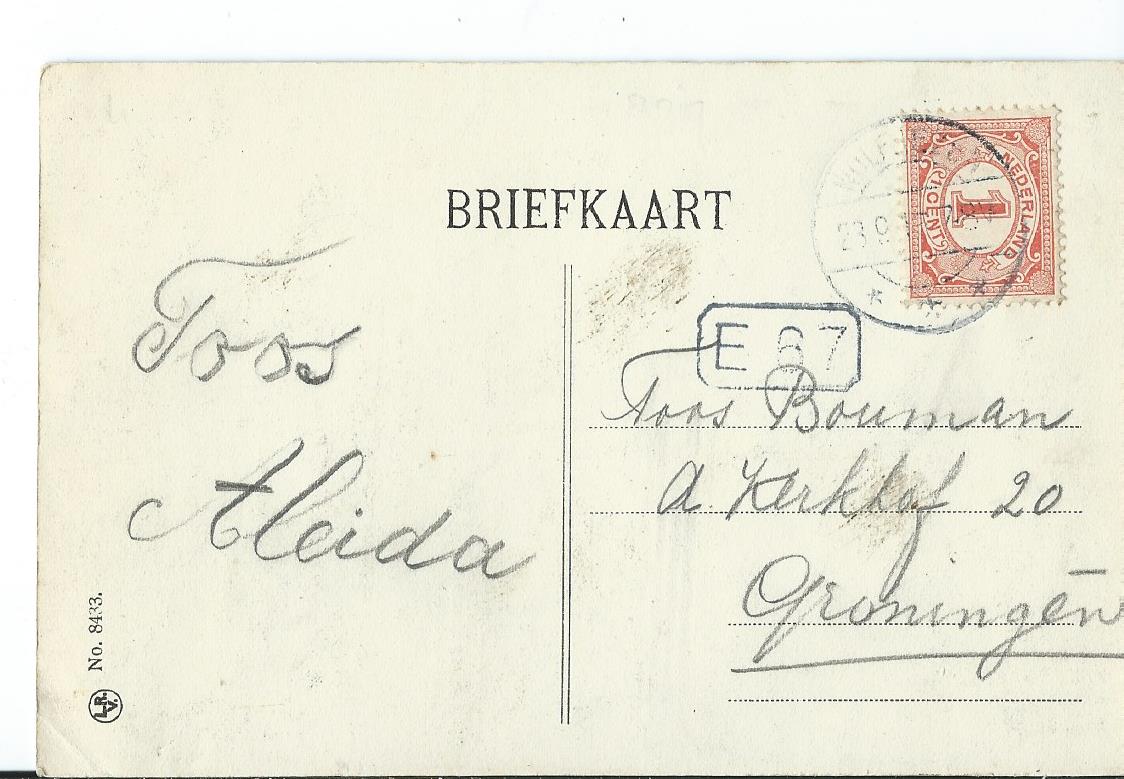 BRIEFKAART
NEDERLAND
1
1 CENT
E 67
Toos
Aleida
Toos Bouman
a. Kerkhof 20
Groningen
No. 8433.
L.R.
V.